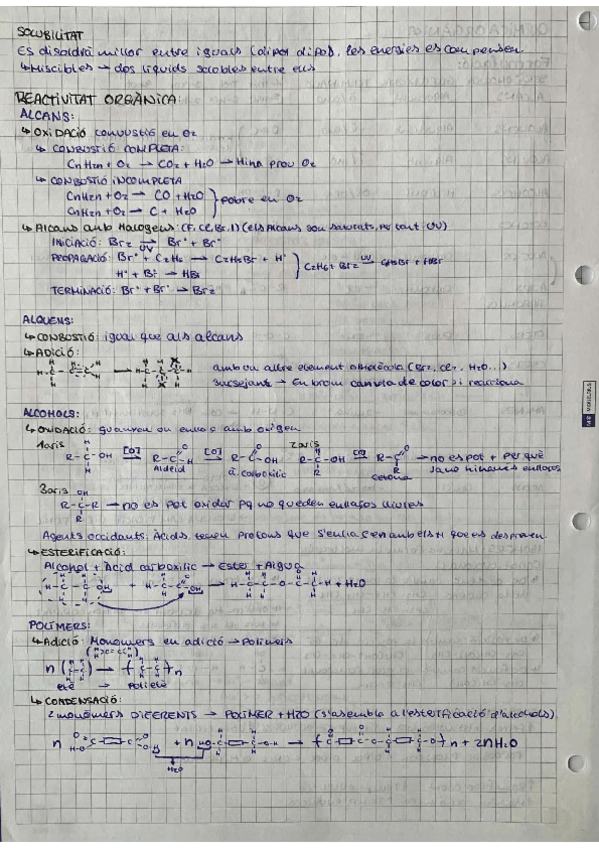 SOLUBILITAT
Es disoldrà millor entre iguals (dipol dipol), les energies es compensen
↳ Miscibles → dos líquids solubles entre ells
REACTIVITAT ORGÀNICA:
ALCANS:
↳ OXIDACIÓ combustió en O2
↳ COMBUSTIÓ COMPLETA:
CnH2n + O2 → CO2 + H2O → Hi ha prou O2
↳ COMBUSTIÓ INCOMPLETA
CnH2n + O2 → CO + H2O } pobre en O2
CnH2n + O2 → C + H2O
↳ Alcans amb Halogens: (F, Cl, Br, I) (els Alcans sou saturats, per tant UV)
INICIACIÓ: Br2 → UV Br• + Br•
PROPAGACIÓ: Br• + C2H6 → C2H5Br + H• } C2H6 + Br2 UV →
H• + Br → HBr
TERMINACIÓ: Br• + Br• → Br2
ALQUENS:
↳ COMBUSTIÓ: igual que als alcans
↳ ADICIÓ:
amb un altre element o molècula (Br2, Cl2, H2O...)
→ En brom canvia de color si reacciona
ALCOHOLS:
↳ OXIDACIÓ: guanyen un enllaç amb oxigen
1aris R-C-OH [O] → R-C Aldeid [O] → R-C-OH à. carboxílic
2aris R-C-OH [O] → R-C-R cetona → no es pot + per què ja no hi ha més enllaços
3aris R-C-R → no es pot oxidar pq no queden enllaços lliures
Agents oxidants: Àcids, tenen protons que s'enllacen amb els H que es desprenen
↳ ESTERIFICACIÓ:
Alcohol + Àcid carboxílic → Ester + Aigua
+ H2O
POLÍMERS:
↳ Adició: Monomers en adició → Polímers
n ( C=C ) → ( C-C )n
etè → polietè
↳ CONDENSACIÓ:
2 monòmers DIFERENTS → POLÍMER + H2O (s'asembla a l'esterificació d'alcohols)
n + n → n + 2nH2O
H2O